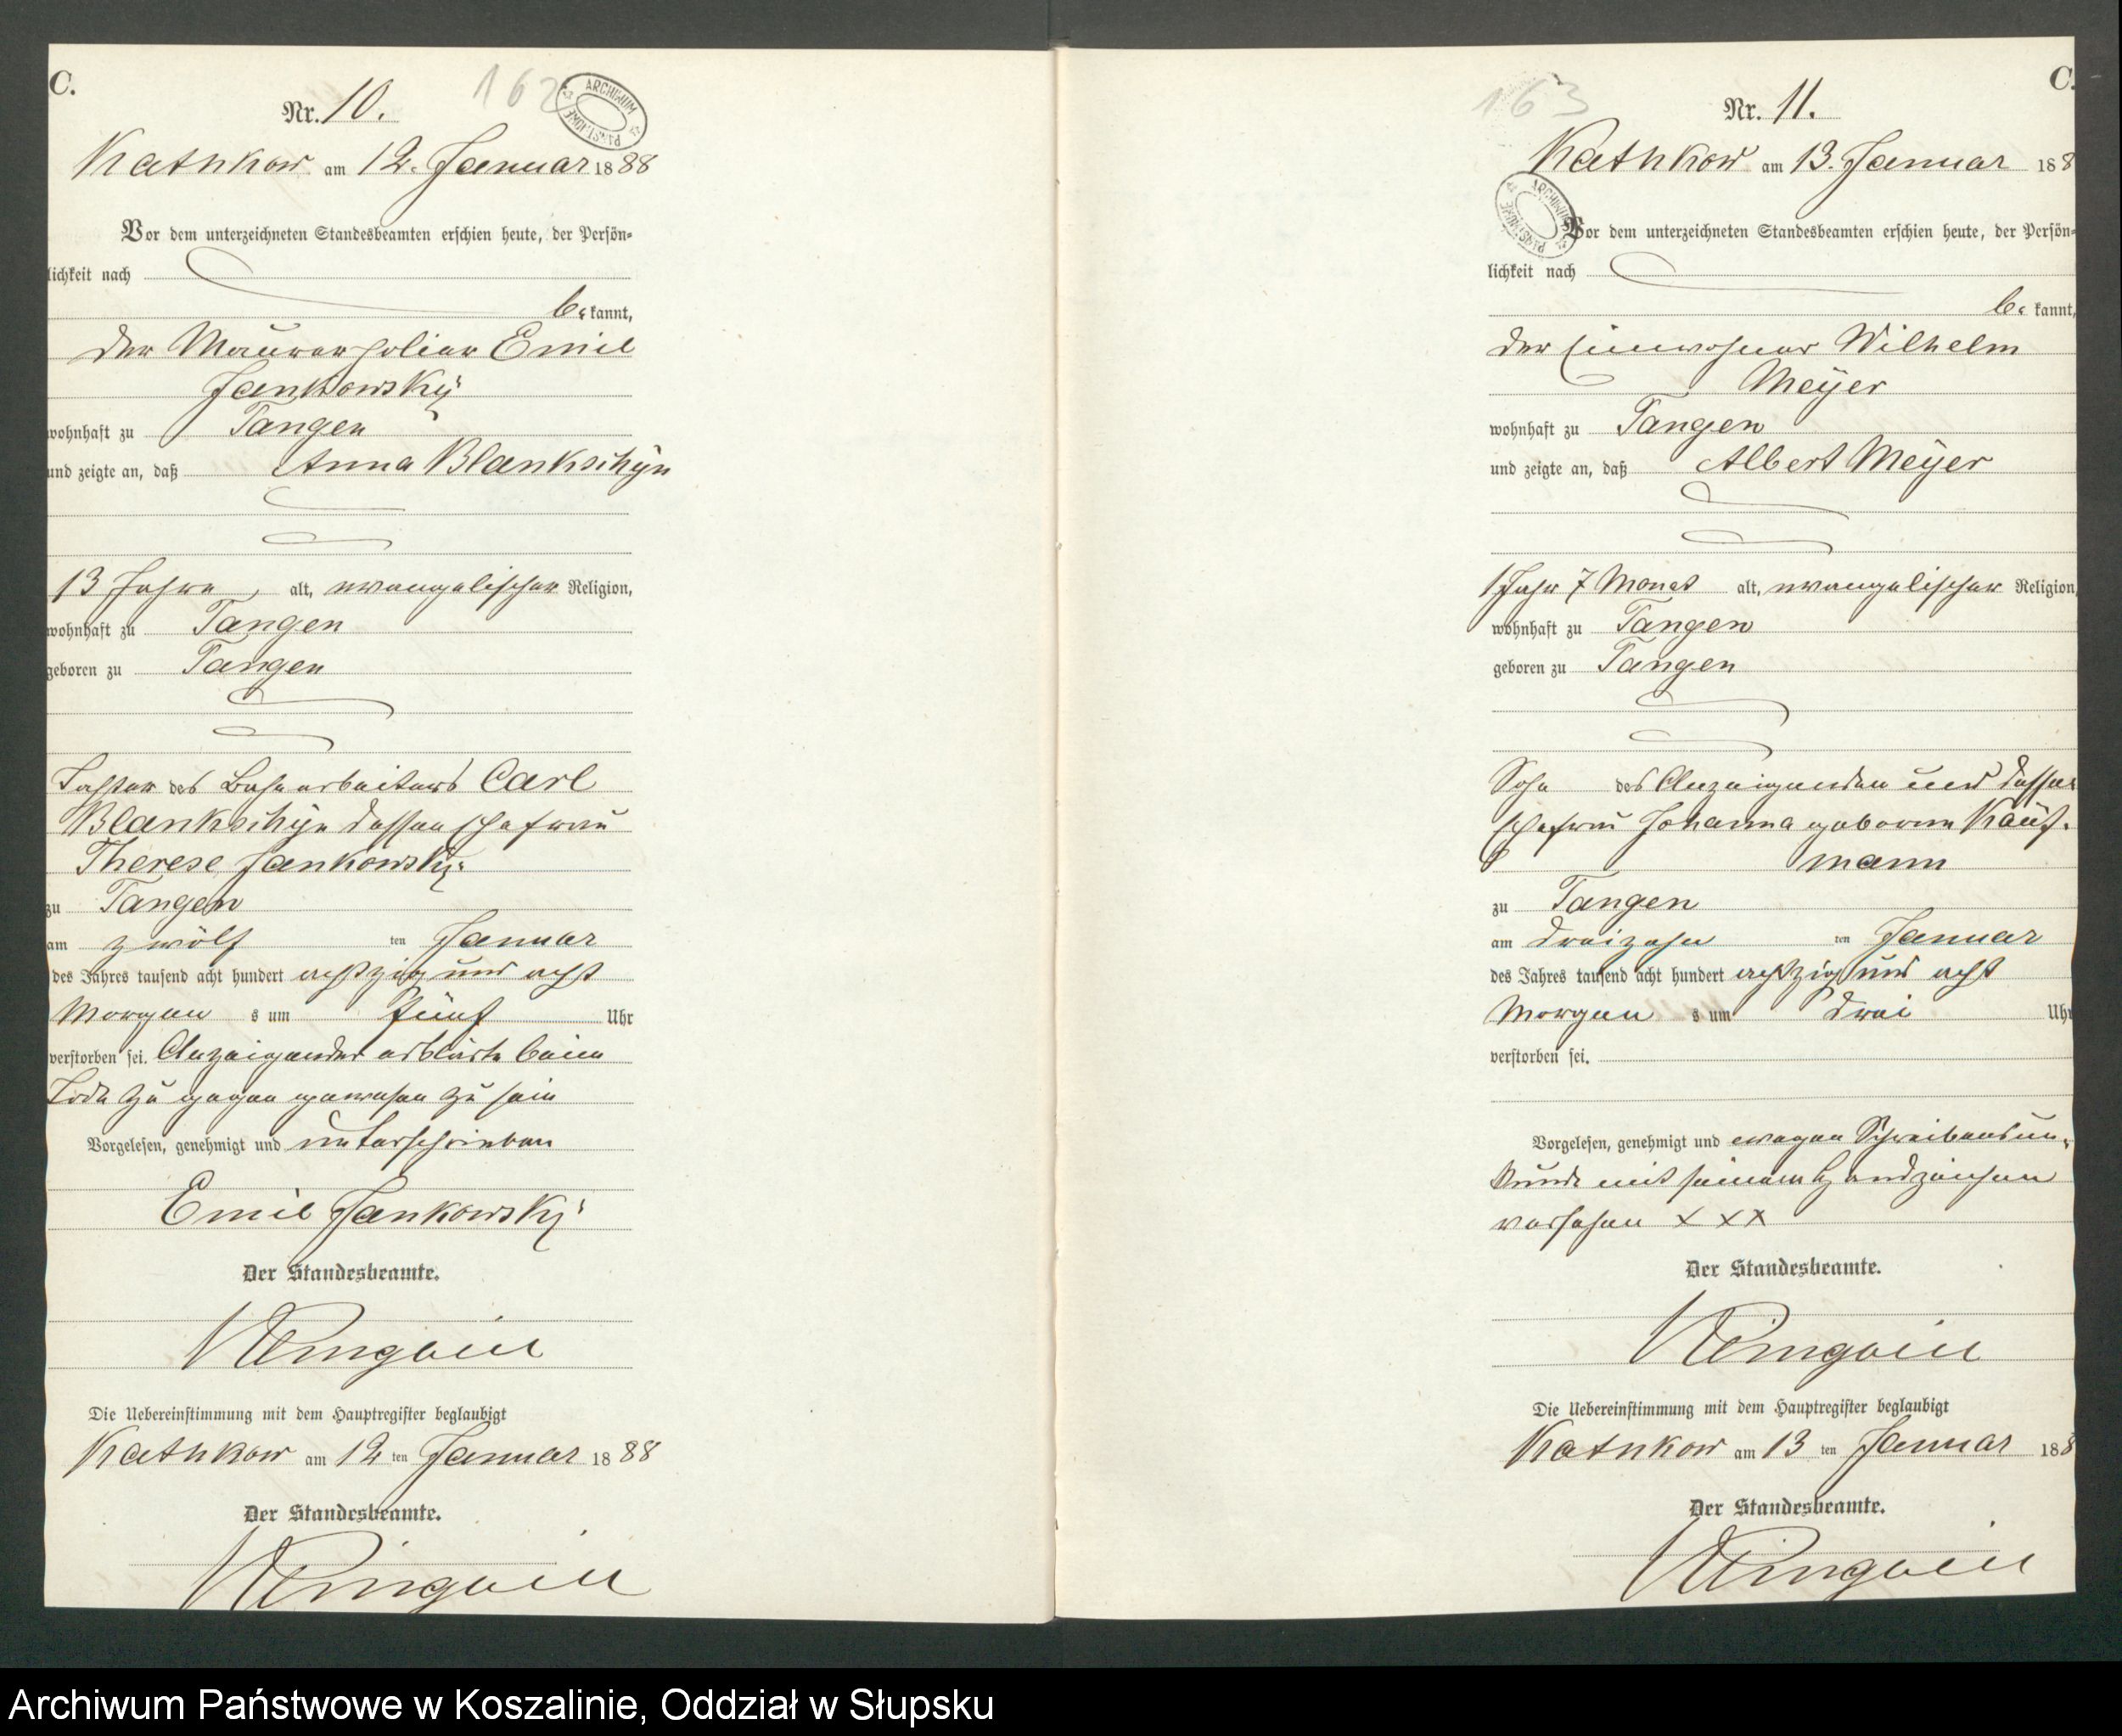 C.
Nr. 10.
162
ARCHIWUM PAŃSTWOWE
Kathkow am 12. Januar 1888
Vor dem unterzeichneten Standesbeamten erschien heute, der Persön-
lichkeit nach
be kannt,
der Maurerpolier Emil
Jankowsky
wohnhaft zu Tangen
und zeigte an, daß Anna Blankschÿn
13 Jahre, alt, evangelischer Religion,
wohnhaft zu Tangen
geboren zu Tangen
Tochter des Bahnarbeiters Carl
Blankschÿn dessen Ehefrau
Therese Jankowsky.
zu Tangen
am zwölf ten Januar
des Jahres tausend acht hundert achtzig und acht
Morgen s um fünf Uhr
verstorben sei. Anzeigender erklärte beim
Tode zu gegen gewesen zu sein
Vorgelesen, genehmigt und unterschrieben
Emil Jankowsky
Der Standesbeamte.
Die Uebereinstimmung mit dem Hauptregister beglaubigt
Kathkow am 12 ten Januar 1888
Der Standesbeamte.
C.
Nr. 11.
163
ARCHIWUM PAŃSTWOWE
Kathkow am 13. Januar 188
Vor dem unterzeichneten Standesbeamten erschien heute, der Persön-
lichkeit nach
be kannt,
der Einwohner Wilhelm
Meÿer
wohnhaft zu Tangen
und zeigte an, daß Albert Meÿer
1 Jahr 7 Monat alt, evangelischer Religion,
wohnhaft zu Tangen
geboren zu Tangen
Sohn des Anzeigenden und dessen
Ehefrau Johanna geborne Kauf-
mann
zu Tangen
am dreizehn ten Januar
des Jahres tausend acht hundert achtzig und acht
Morgen s um drei Uhr
verstorben sei.
Vorgelesen, genehmigt und wegen Schreibensun-
kunde mit seinem Handzeichen
versehen x x x
Der Standesbeamte.
Die Uebereinstimmung mit dem Hauptregister beglaubigt
Kathkow am 13 ten Januar 188
Der Standesbeamte.
Archiwum Państwowe w Koszalinie, Oddział w Słupsku